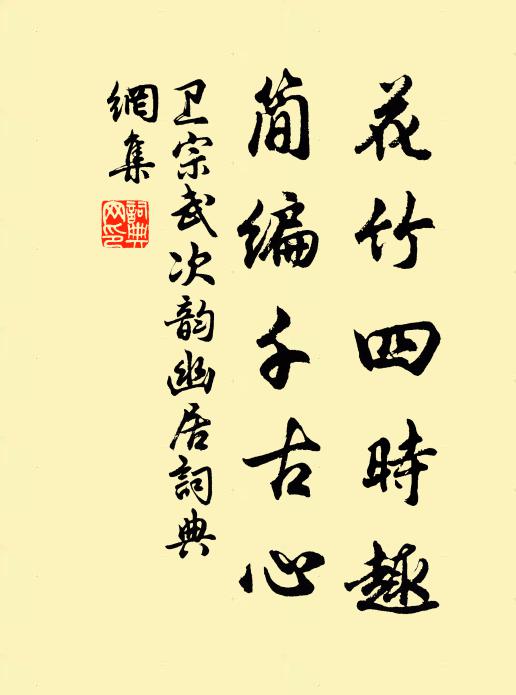 花竹四時趣
簡編千古心
卫宗武次韵幽居詞典
網集
詞典
网印